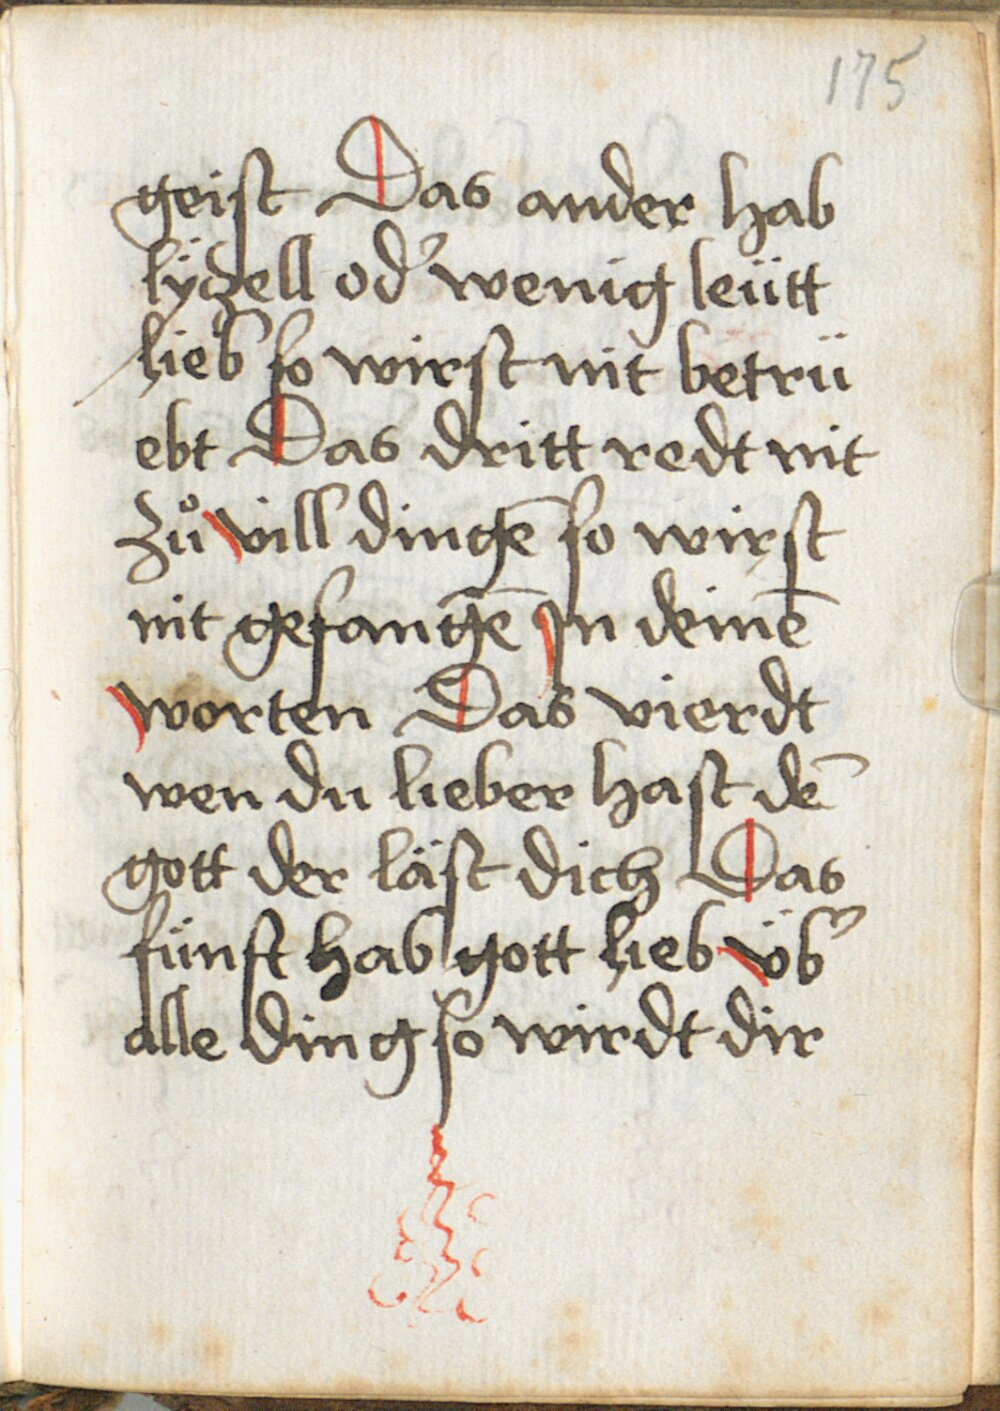 175
geist Das ander hab
lÿczell od' wenig leütt
lieb so wirst nit betrü
ebt Das dritt redt nit
Zů vill dingē so wirst
nit gefangē Jn deinē
worten Das vierdt
wen du lieber hast dē
gott der läst dich Das
fünft hab gott lieb üb'
alle ding so wirdt dir